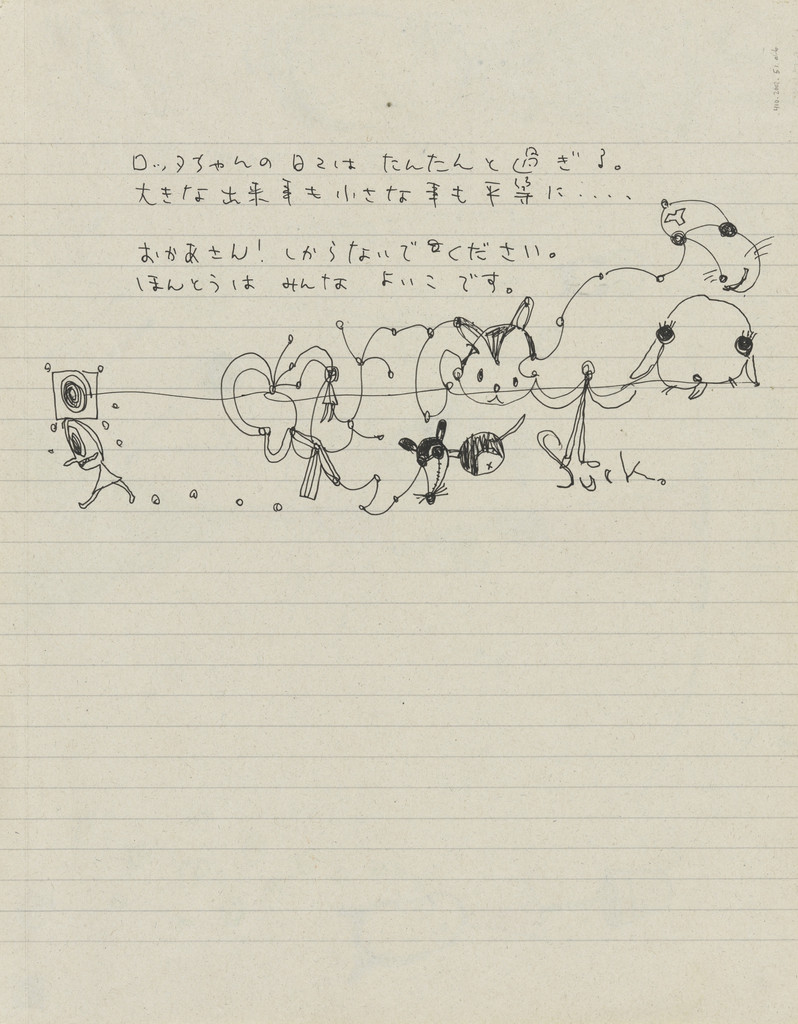 ロッタちゃんの日々は たんたんと過ぎる。
大きな出来事も小さな事も平等に・・・・
おかあさん! しからないでください。
ほんとうは みんな よいこ です。